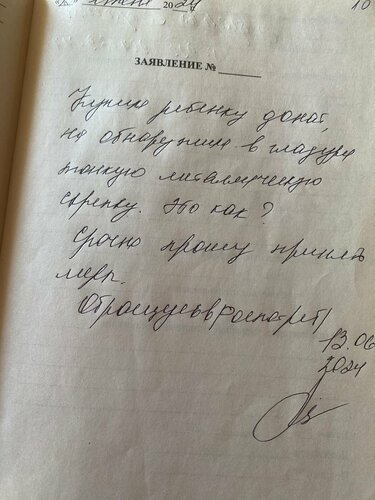 2024
10
ЗАЯВЛЕНИЕ №
Купили ребенку донат,
но обнаружили в глазури
тонкую металическую
скрепку. Это как?
Срочно прошу принять
меры.
Обращусь в
13.06
2024